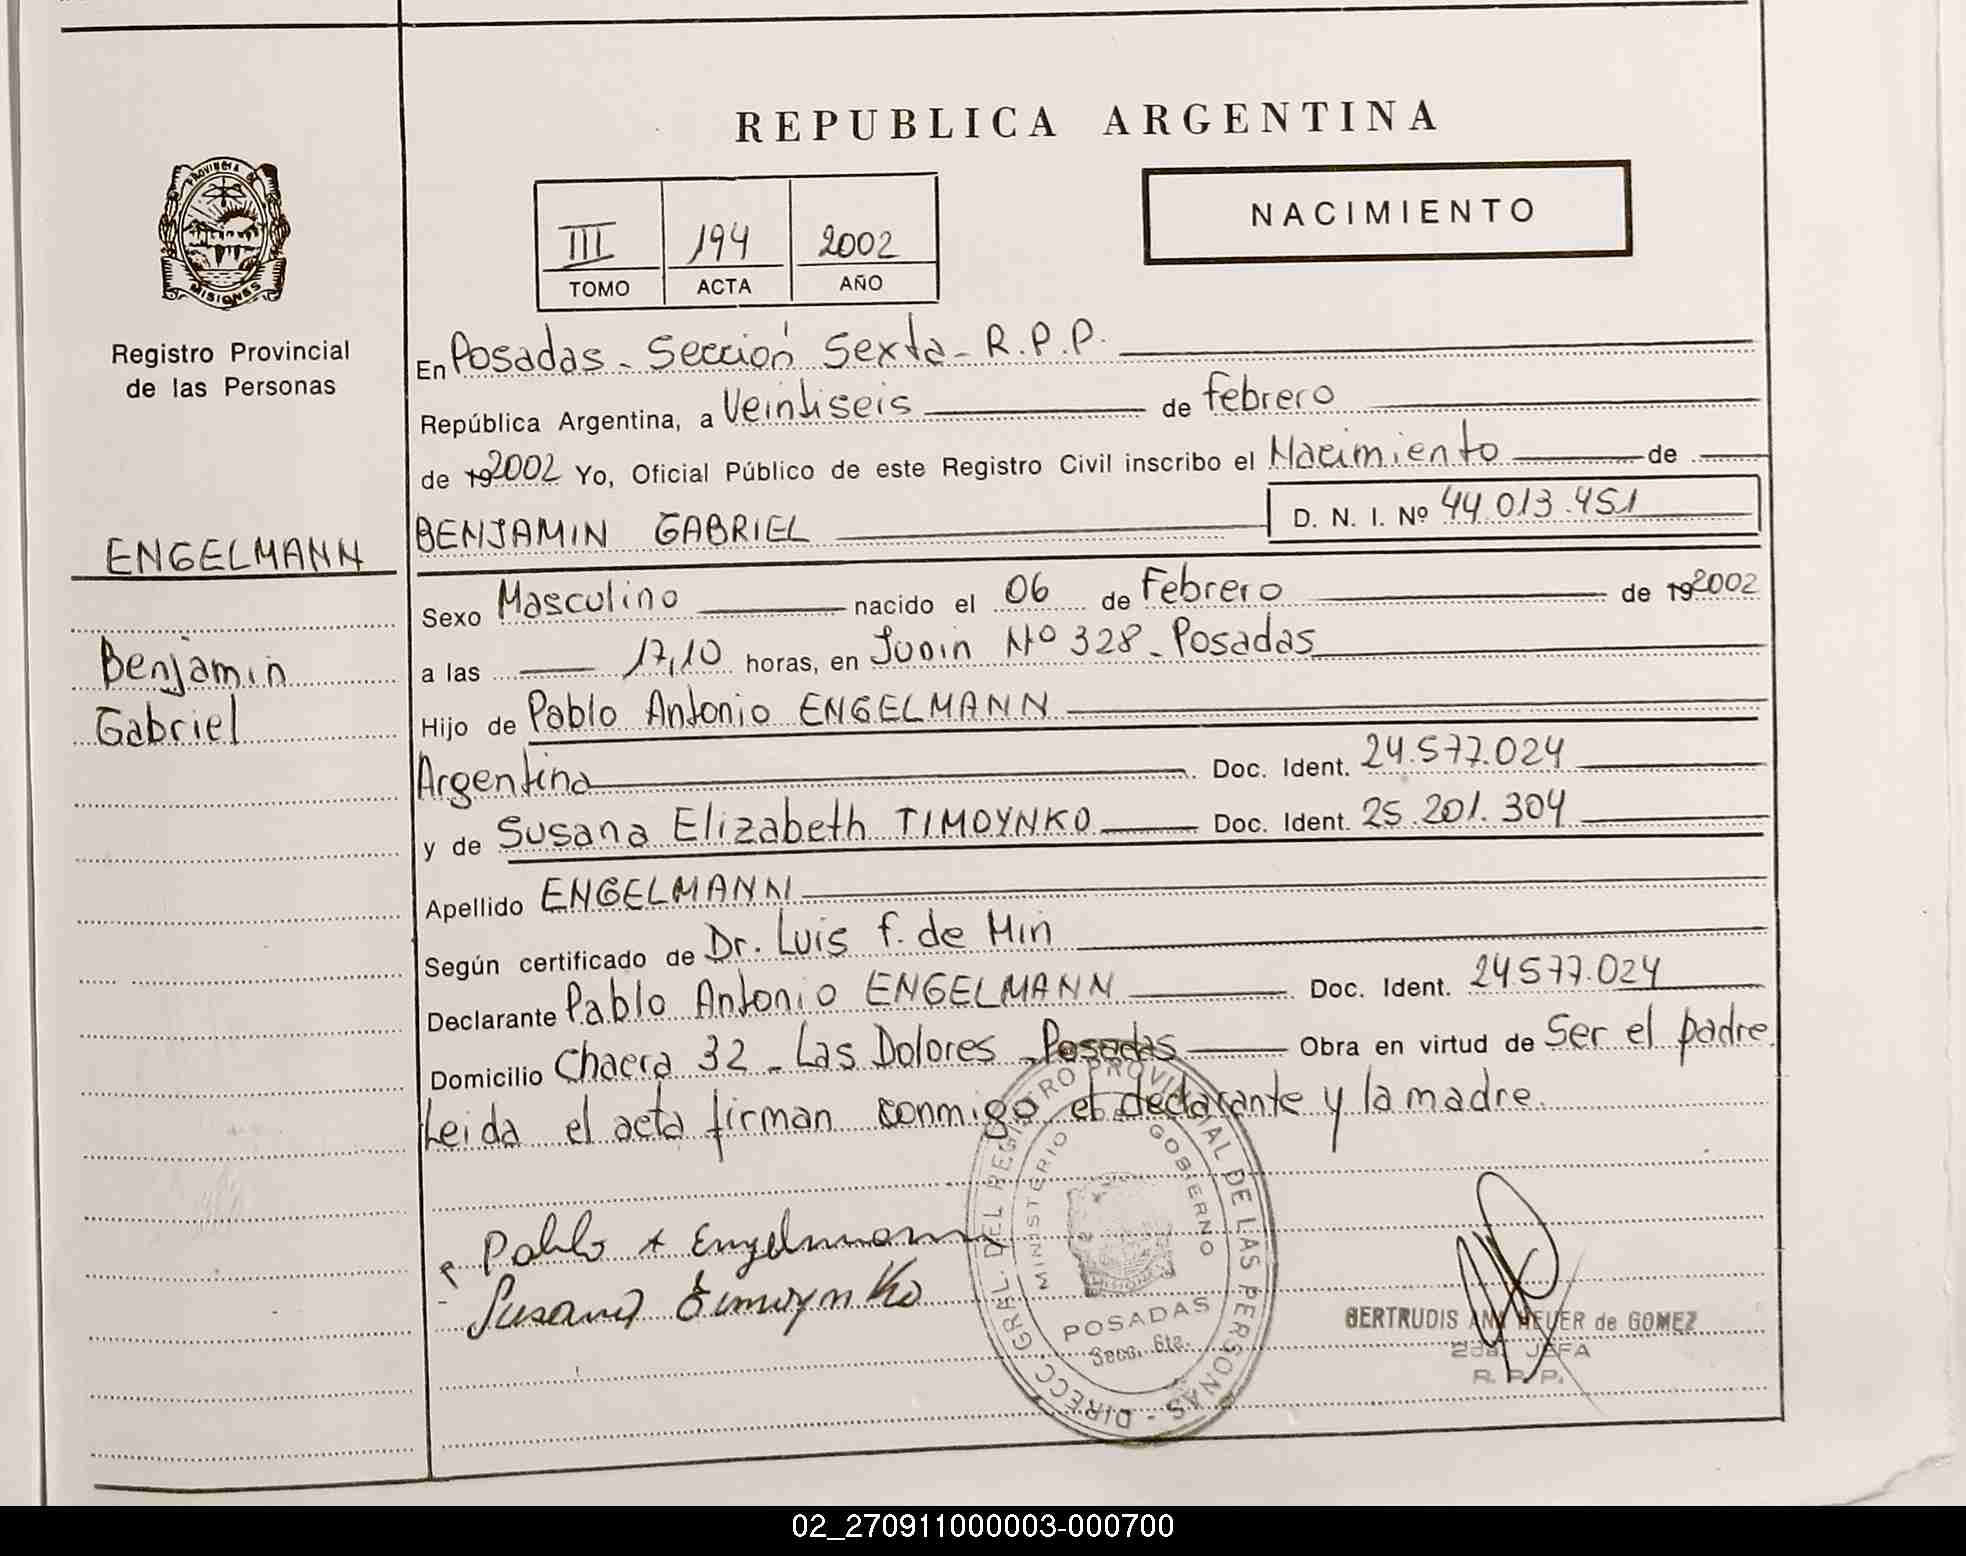 REPUBLICA ARGENTINA
PROVINCIA DE
MISIONES
Registro Provincial
de las Personas
III 194 2002
TOMO ACTA AÑO
NACIMIENTO
En Posadas - Sección Sexta - R.P.P.
República Argentina, a Veintiseis de febrero
de 19 2002 Yo, Oficial Público de este Registro Civil inscribo el Nacimiento de
ENGELMANN
Benjamin
Gabriel
BENJAMIN GABRIEL D. N. I. Nº 44.013.451
Sexo Masculino nacido el 06 de Febrero de 19 2002
a las 17,10 horas, en Junin Nº 328 - Posadas
Hijo de Pablo Antonio ENGELMANN
Argentina Doc. Ident. 24.577.024
y de Susana Elizabeth TIMOYNKO Doc. Ident. 25.201.304
Apellido ENGELMANN
Según certificado de Dr. Luis f. de Min
Declarante Pablo Antonio ENGELMANN Doc. Ident. 24577.024
Domicilio Chacra 32 - Las Dolores - Posadas Obra en virtud de Ser el padre.
Leida el acta firman conmigo el declarante y la madre.
Pablo A Engelmann
Susana Timoynko
DIRECC. GRAL. DEL REGISTRO PROVINCIAL DE LAS PERSONAS -
MINISTERIO DE GOBIERNO
MISIONES
POSADAS
Secc. 6ta.
GERTRUDIS ANA HEUER de GOMEZ
2da. JEFA
R. P. P.
02_270911000003-000700